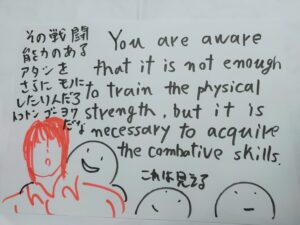 その戦闘
能力のある
アタシを
さらにモノに
したりんだろ
トコトンゴーヨク
だな
You are aware
that it is not enough
to train the physical
strength, but it is
necessary to acquire
the combative skills.
これは見てる